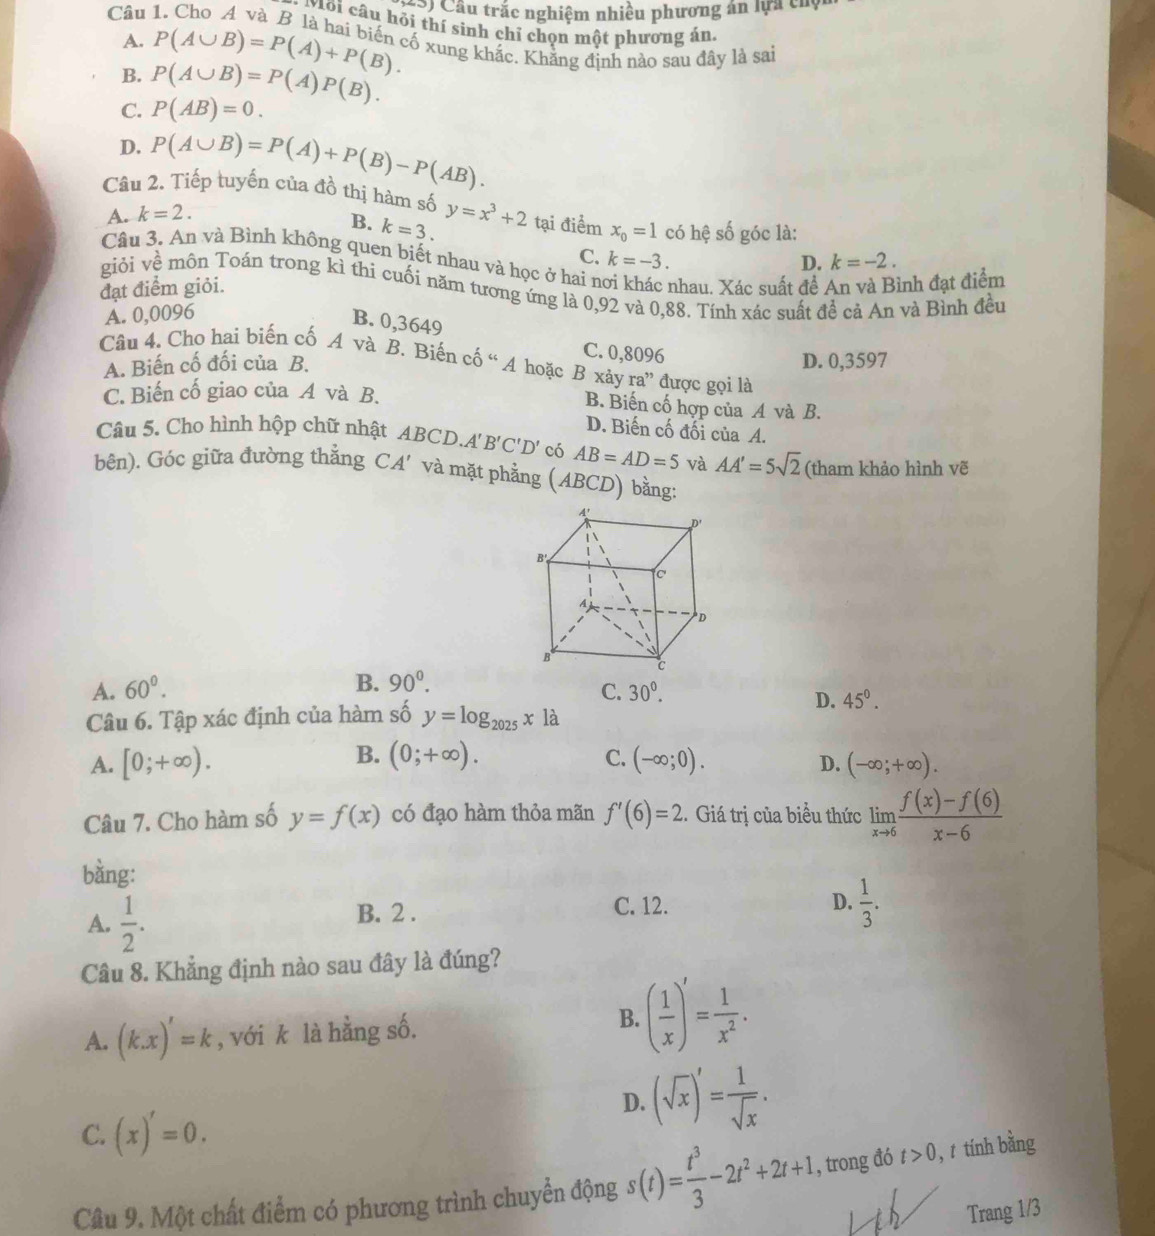 Mỗi câu hỏi thí sinh chỉ chọn một phương án.
Câu trắc nghiệm nhiều phương án lựa
Câu 1. Cho A và B là hai biến cố xung khắc. Khẳng định nào sau đây là sai
A. P(A∪B)=P(A)+P(B).
B. P(A∪B)=P(A)P(B).
C. P(AB)=0.
D. P(A∪B)=P(A)+P(B)−P(AB).
Câu 2. Tiếp tuyến của đồ thị hàm số y=x³+2 tại điểm x₀=1 có hệ số góc là:
A. k=2. B. k=3. C. k=−3. D. k=−2.
Câu 3. An và Bình không quen biết nhau và học ở hai nơi khác nhau. Xác suất để An và Bình đạt điểm
giỏi về môn Toán trong kì thi cuối năm tương ứng là 0,92 và 0,88. Tính xác suất để cả An và Bình đều
đạt điểm giỏi.
A. 0,0096 B. 0,3649 C. 0,8096 D. 0,3597
Câu 4. Cho hai biến cố A và B. Biến cố “ A hoặc B xảy ra” được gọi là
A. Biến cố đối của B. B. Biến cố hợp của A và B.
C. Biến cố giao của A và B. D. Biến cố đối của A.
Câu 5. Cho hình hộp chữ nhật ABCD.A'B'C'D' có AB=AD=5 và AA'=5√2 (tham khảo hình vẽ
bên). Góc giữa đường thẳng CA' và mặt phẳng (ABCD) bằng:
A'
D'
B'
C'
A
D
B
C
A. 60⁰. B. 90⁰. C. 30⁰. D. 45⁰.
Câu 6. Tập xác định của hàm số y=log₂₀₂₅ x là
A. [0;+∞). B. (0;+∞). C. (−∞;0). D. (−∞;+∞).
Câu 7. Cho hàm số y=f(x) có đạo hàm thỏa mãn f'(6)=2. Giá trị của biểu thức lim x→6 (f(x)−f(6))/(x−6)
bằng:
A. 1/2. B. 2. C. 12. D. 1/3.
Câu 8. Khẳng định nào sau đây là đúng?
A. (k.x)'=k, với k là hằng số. B. (1/x)'=1/x².
C. (x)'=0. D. (√x)'=1/√x.
Câu 9. Một chất điểm có phương trình chuyển động s(t)=t³/3−2t²+2t+1, trong đó t>0, t tính bằng
Trang 1/3